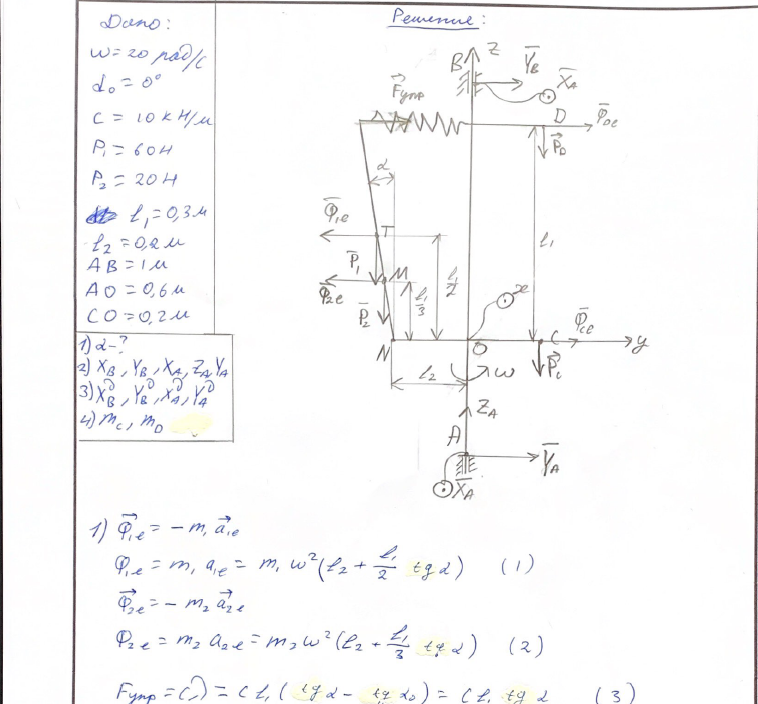 Дано:
ω = 20 рад/с
α₀ = 0°
c = 10 кН/м
P₁ = 60 Н
P₂ = 20 Н
l₁ = 0,3 м
l₂ = 0,2 м
AB = 1 м
AO = 0,6 м
CO = 0,2 м
1) α - ?
2) X_B, Y_B, X_A, Z_A, Y_A
3) X_B^д, Y_B^д, X_A^д, Y_A^д
4) m_C, m_D
Решение:
B Z Y_B X_A
F_упр D Φ_De
P_D
α
Φ_1e T l₁
P₁ M l₁/2
Φ_2e P₂ l₁/3 x
Φ_Ce
N O C y
l₂ ω P_C
Z_A
A Y_A
X_A
1) Φ_1e = − m₁ a_1e
Φ_1e = m₁ a_1e = m₁ ω² (l₂ + l₁/2 tg α) (1)
Φ_2e = − m₂ a_2e
Φ_2e = m₂ a_2e = m₂ ω² (l₂ + l₁/3 tg α) (2)
F_упр = cλ = c l₁ ( tg α − tg α₀) = c l₁ tg α (3)